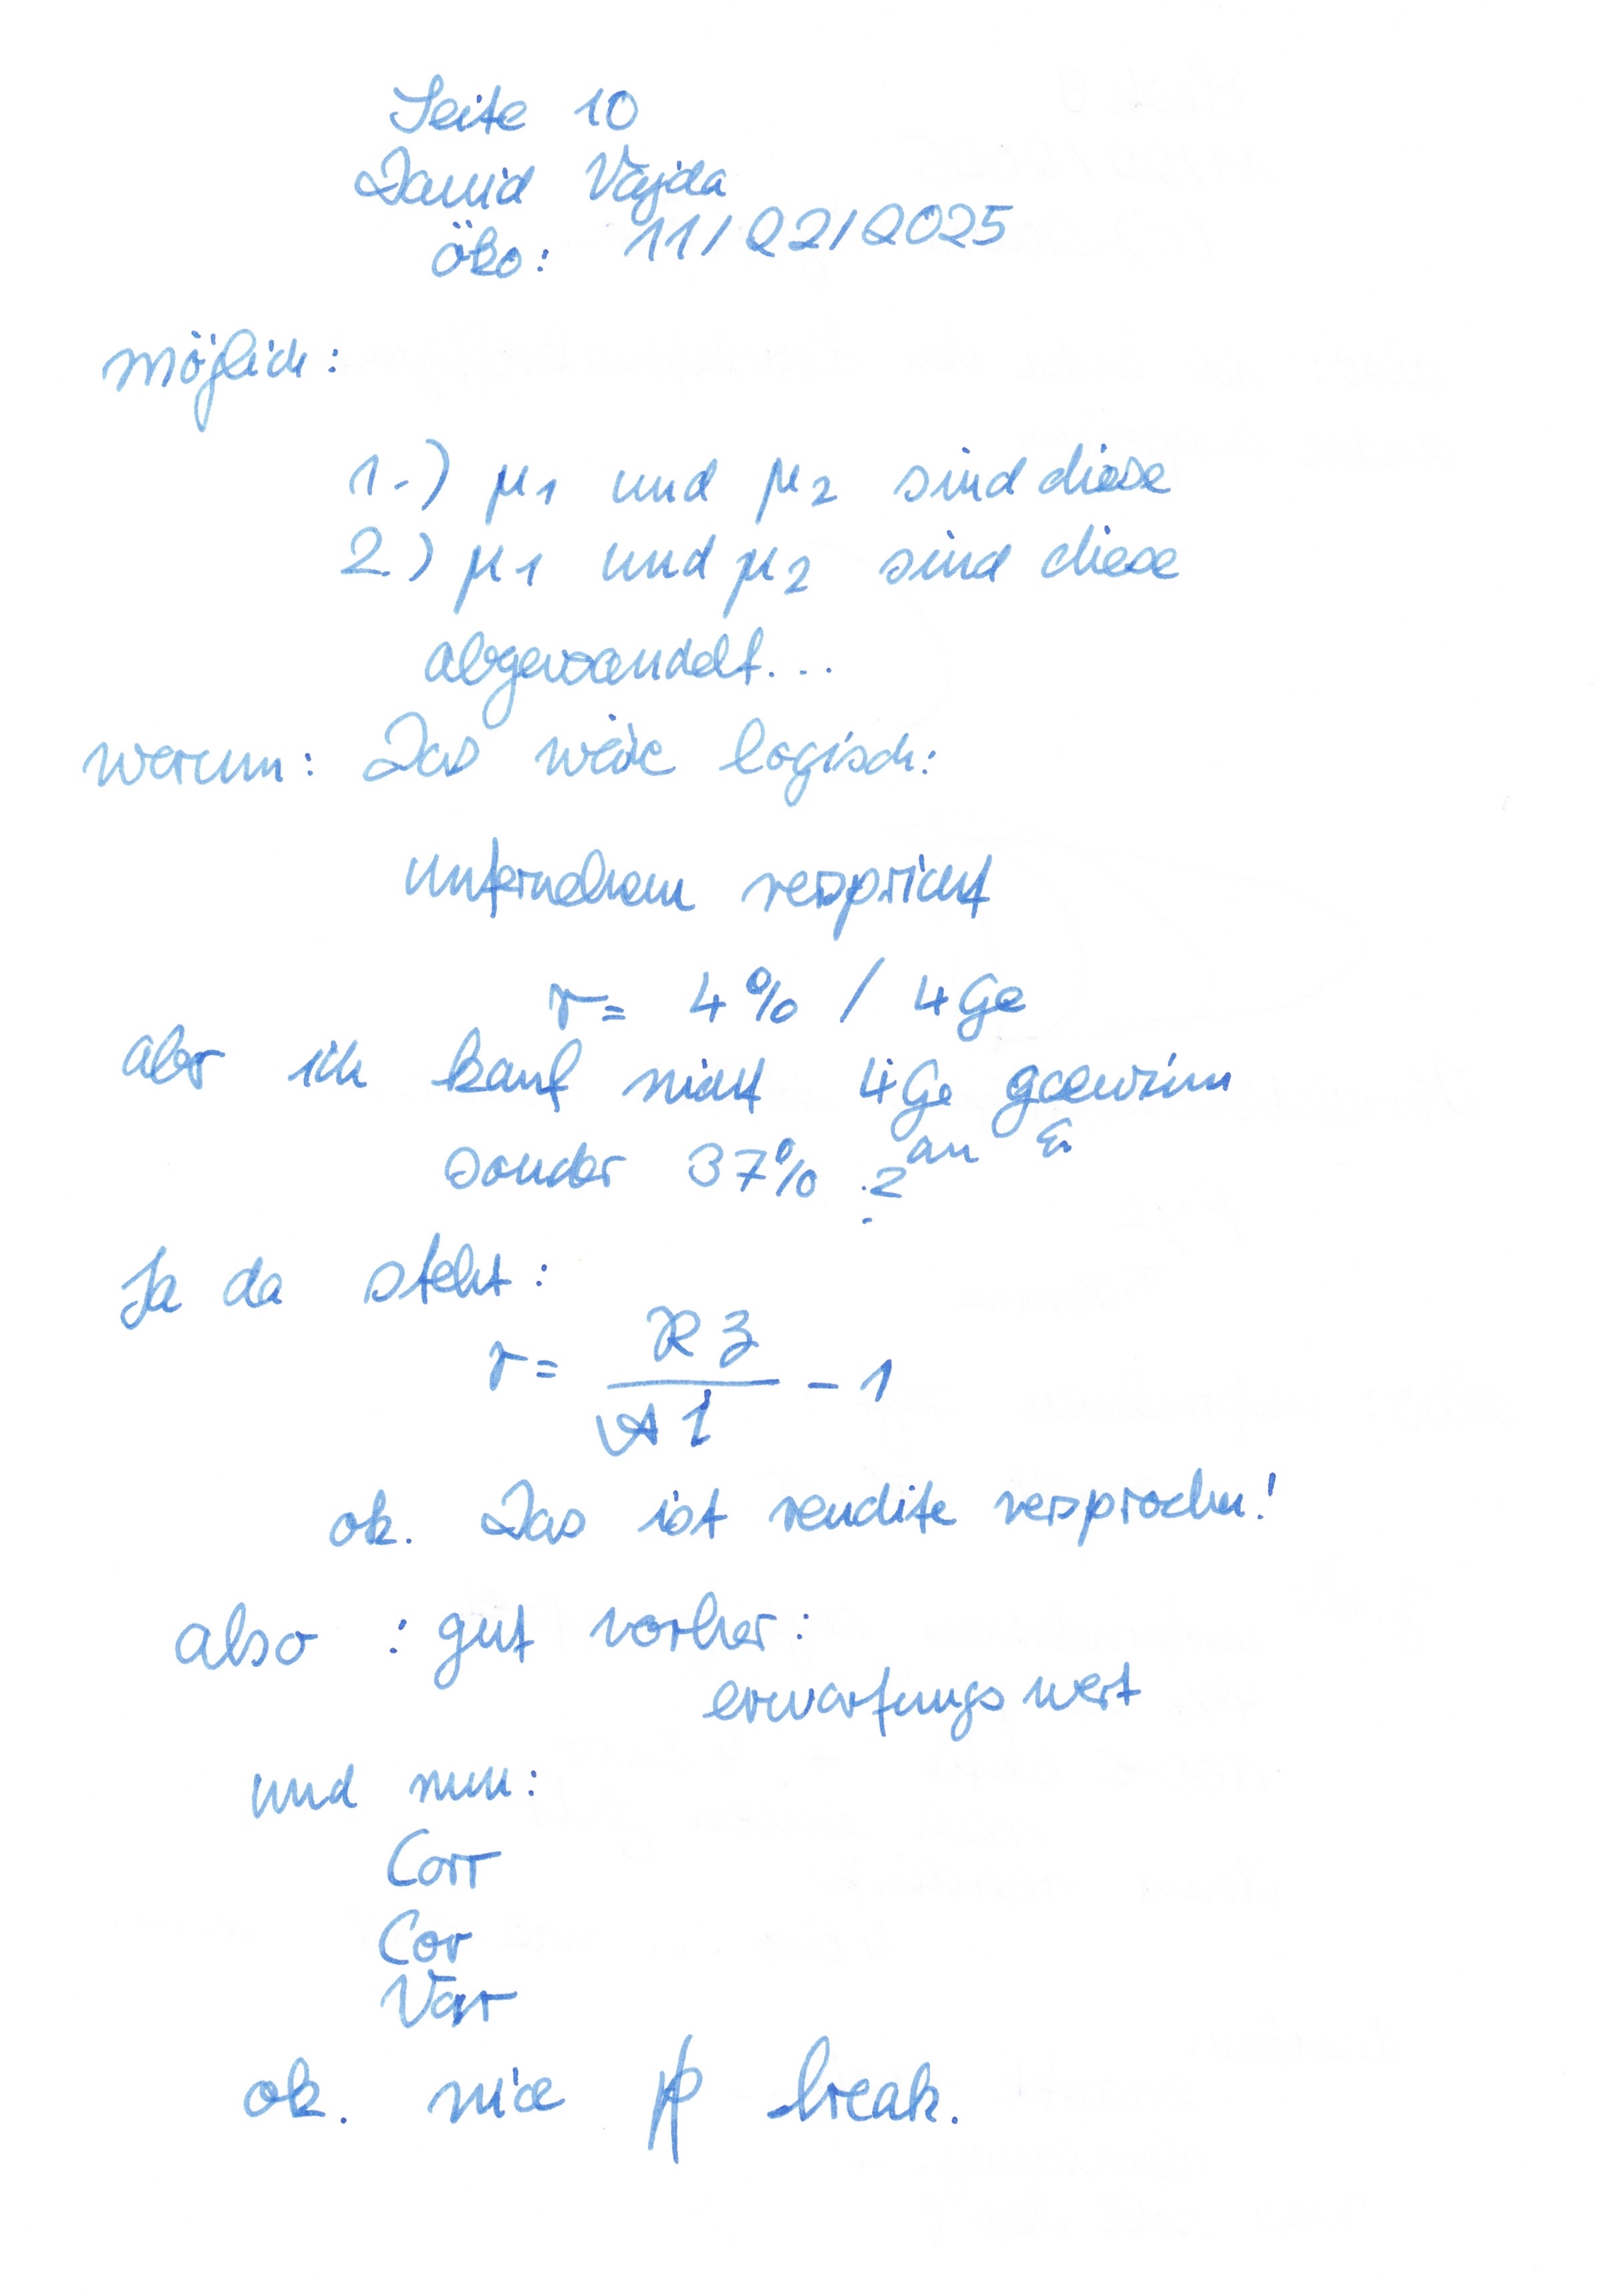 Seite 10
David Vajda
öko: 11/22/2025
möglich:
1.) μ1 und μ2 sind diese
2.) μ1 und μ2 sind diese
abgewandelt...
warum: Das wäre logisch:
unternehem verspricht
r = 4% / 4Ge
aber ich kauf nicht 4Ge
sonder 37% an
Ja da steht:
r = RZ / AI - 1
ok. Das ist rendite versprochen!
also : gut vorher:
erwartungswert
und nun:
Corr
Cov
Var
ok. nice break.